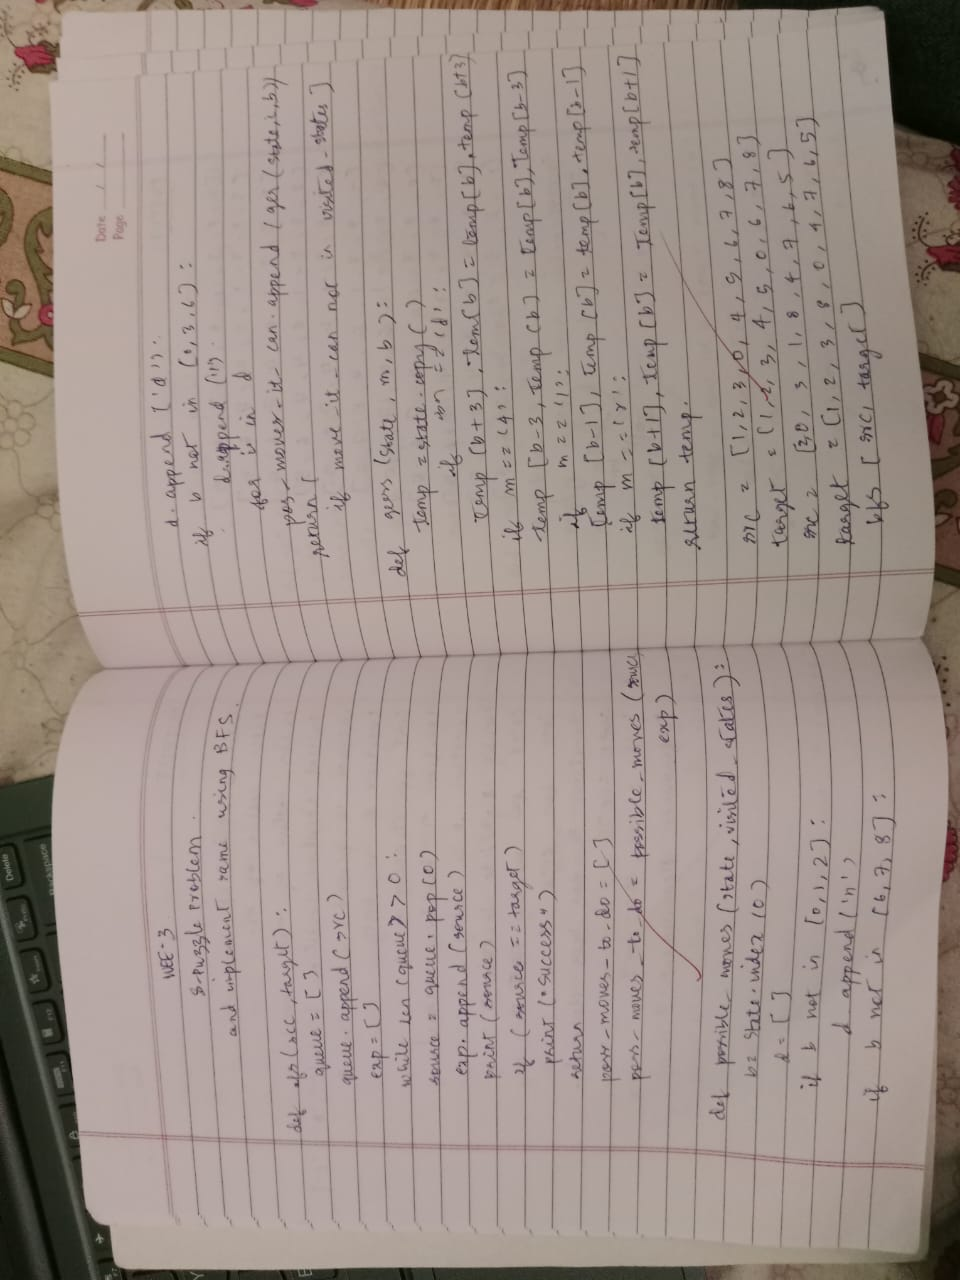 WEE-3
8-Puzzle Problem.
and implement same using BFS.
def bfs (src, target) :
queue = [ ]
queue. append (src)
exp = [ ]
while len (queue) > 0 :
source = queue. pop (0)
exp. append (source)
print (source)
if (source == target)
print ("success")
return
poss - moves - to - do = [ ]
poss - moves - to - do = possible - moves (source
exp)
def possible moves (state, visited - states) :
b = state. index (0)
d = [ ]
if b not in [0, 1, 2] :
d append ('u')
if b not in [6, 7, 8] :
Date / /
Page
d. append ['d').
if b not in [0, 3, 6] :
d. append (').
for i in d
pos - moves - it - can. append (gen (state, i, b))
return [
if move - it - can not in visited - states ]
def gens (state, m, b) :
temp = state. copy ( )
if m == 'd' :
temp [b+3], temp [b] = temp [b], temp [b+3)
if m == '4' :
temp [b-3, temp (b) = temp [b], temp [b-3)
if m == '1' :
temp [b-1], temp [b] = temp [b], temp [b-1]
if m = 'r' :
temp [b+1], temp [b] = temp [b], temp [b+1]
return temp.
src = [1, 2, 3, 0, 4, 5, 6, 7, 8]
target = [1, 2, 3, 4, 5, 0, 6, 7, 8]
src = 0, 3, 1, 8, 4, 7, 6, 5]
target = [1, 2, 3, 8, 0, 4, 7, 6, 5]
bfs [ src, target]
Delete
Backspace
Y